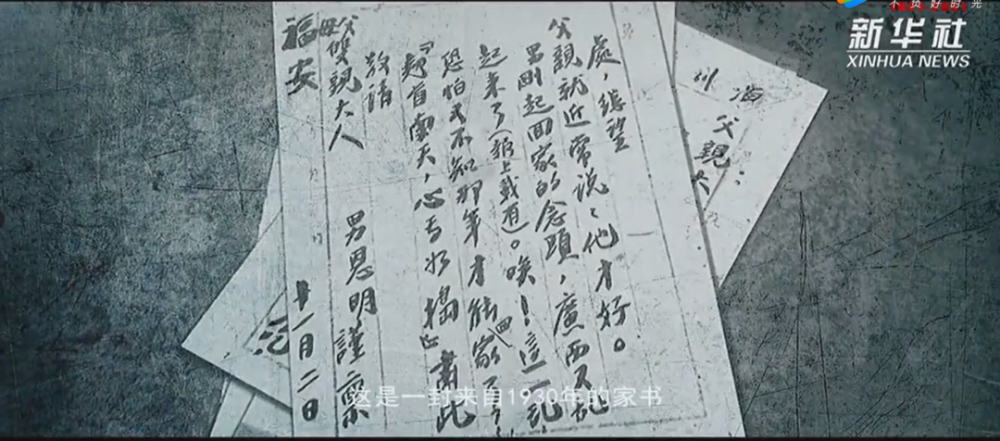 处，总望
父親就近常说说他才好。
男剛起回家的念頭，廣西又乱
起来了（報上載道）。唉！這一乱
恐怕又不知那年才能回家了，
『翘首南天，心与水搗』肃此
敬请
父母双親大人
福安
男恩明謹禀
十一月二日
海
父親
大
这是一封来自1930年的家书
新华社
XINHUA NEWS